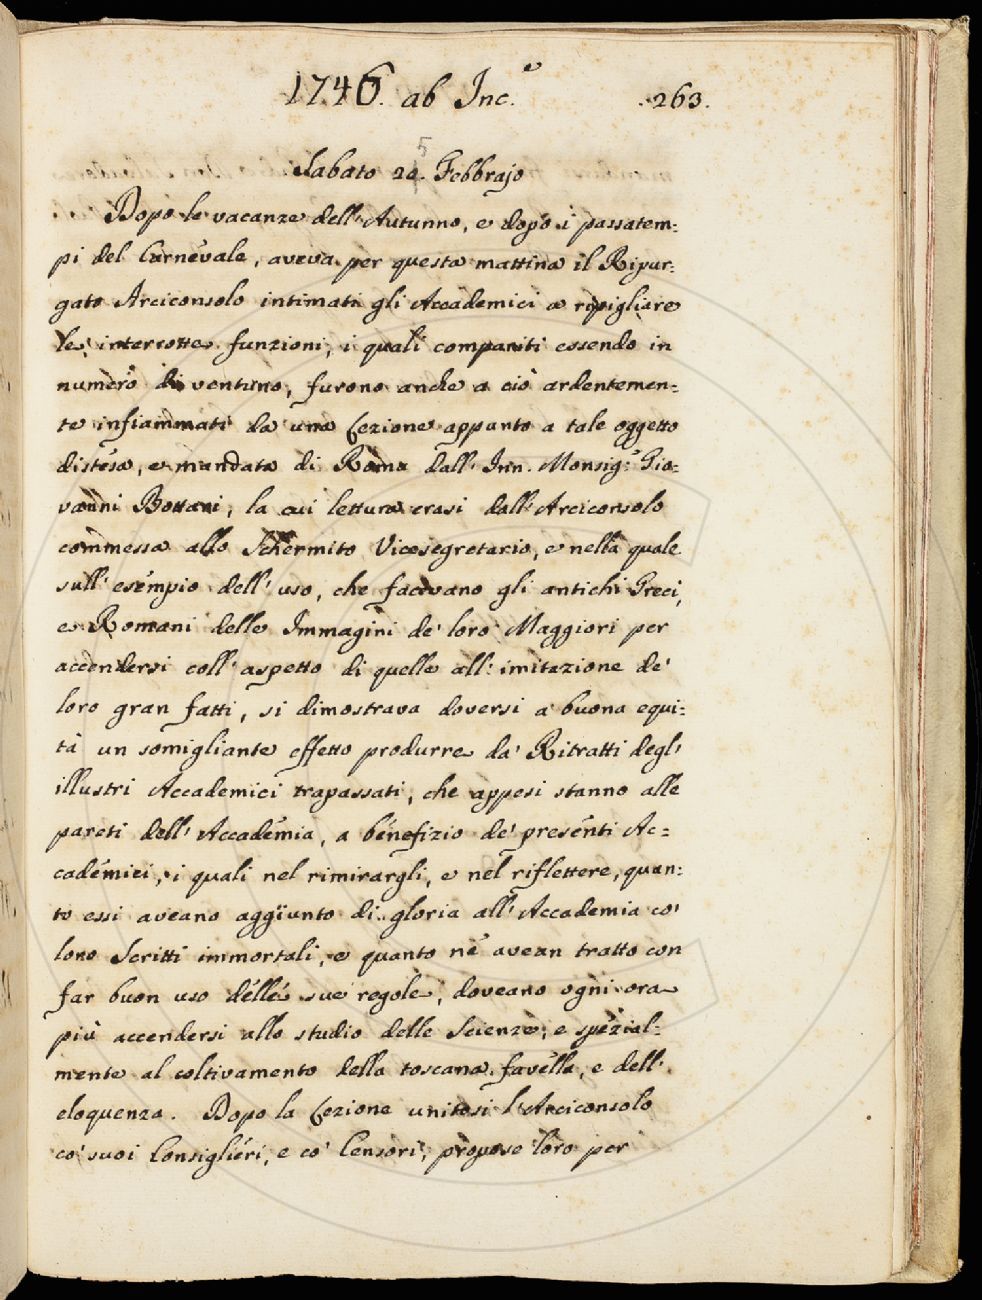 1746. ab Inc.e
.263.
5
Sabato 24. Febbrajo
Dopo le vacanze dell' Autunno, e dopo i passatem:
pi del Carnevale, aveva per questa mattina il Ripur:
gato Arciconsolo intimati gli Accademici a ripigliare
le interrotte funzioni, i quali compariti essendo in
numero di ventuno, furono anche a ciò ardentemen:
te infiammati da una Lezione appunto a tale oggetto
distesa, e mandata di Roma dall' Inn. Monsig.r Gio:
vanni Bottari, la cui lettura erasi dall' Arciconsolo
commessa allo Schermito Vicesegretario, e nella quale
sull' esempio dell' uso, che facevano gli antichi Greci,
e Romani delle Immagini de' loro Maggiori per
accendersi coll' aspetto di quelle all' imitazione de'
loro gran fatti, si dimostrava doversi a buona equi:
tà un somigliante effetto produrre da' Ritratti degl'
illustri Accademici trapassati, che appesi stanno alle
pareti dell' Accademia, a benefizio de' presenti Ac=
cademici, i quali nel rimirargli, e nel riflettere, quan:
to essi aveano aggiunto di gloria all' Accademia co'
loro Scritti immortali, e quanto ne avean tratto con
far buon uso delle sue regole, doveano ogni ora
più accendersi allo studio delle Scienze, e spezial:
mente al coltivamento della toscana favella, e dell'
eloquenza. Dopo la Lezione unitosi l'Arciconsolo
co' suoi Consiglieri, e co' Censori, propose loro per